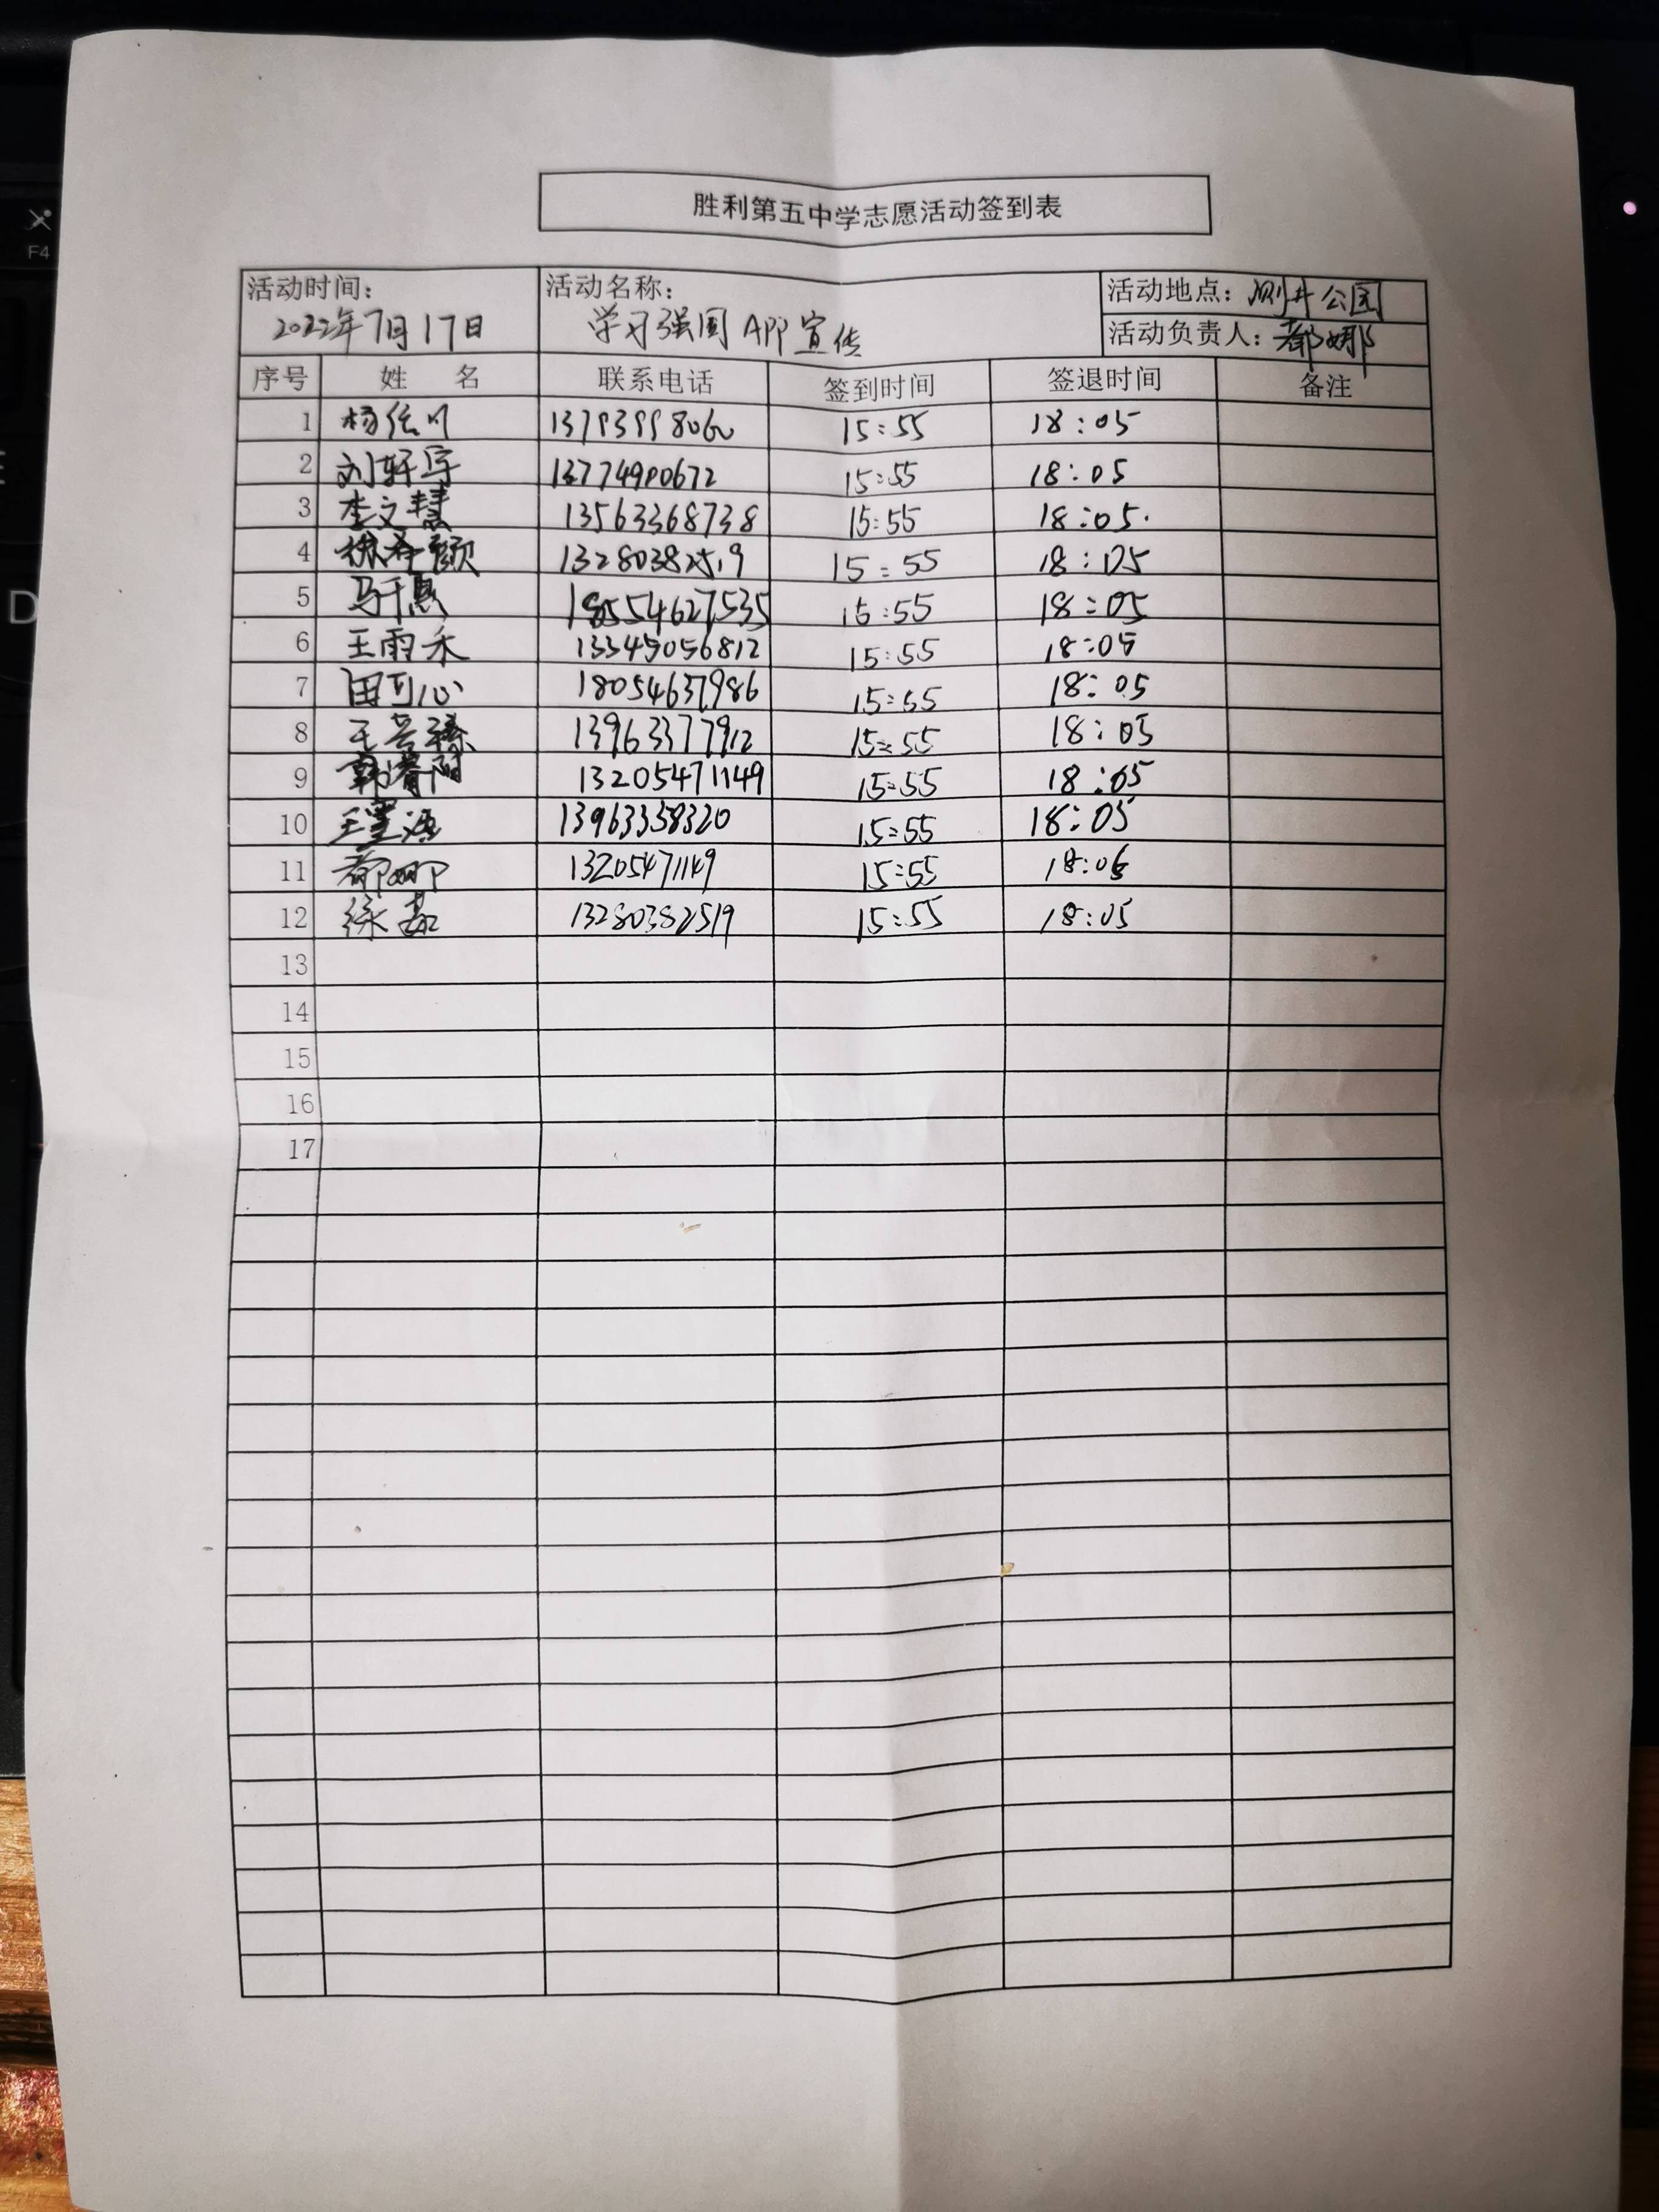 胜利第五中学志愿活动签到表
活动时间： 活动名称： 活动地点：测井公园
2022年7月17日 学习强国APP宣传 活动负责人：都娜
序号 姓 名 联系电话 签到时间 签退时间 备注
1 15:55 18:05
2 刘轩宇 15:55 18:05
3 李文慧 13563368738 15:55 18:05.
4 13280382519 15:55 18:05
5 马千惠 18554627535 15:55 18:05
6 王雨禾 15:55 18:05
7 田可心 18054637986 15:55 18:05
8 13963377912 15:55 18:05
9 13205471149 15:55 18:05
10 13963358320 15:55 18:05
11 都娜 13205471149 15:55 18:06
12 徐磊 13280382519 15:55 18:05
13
14
15
16
17
F4
D